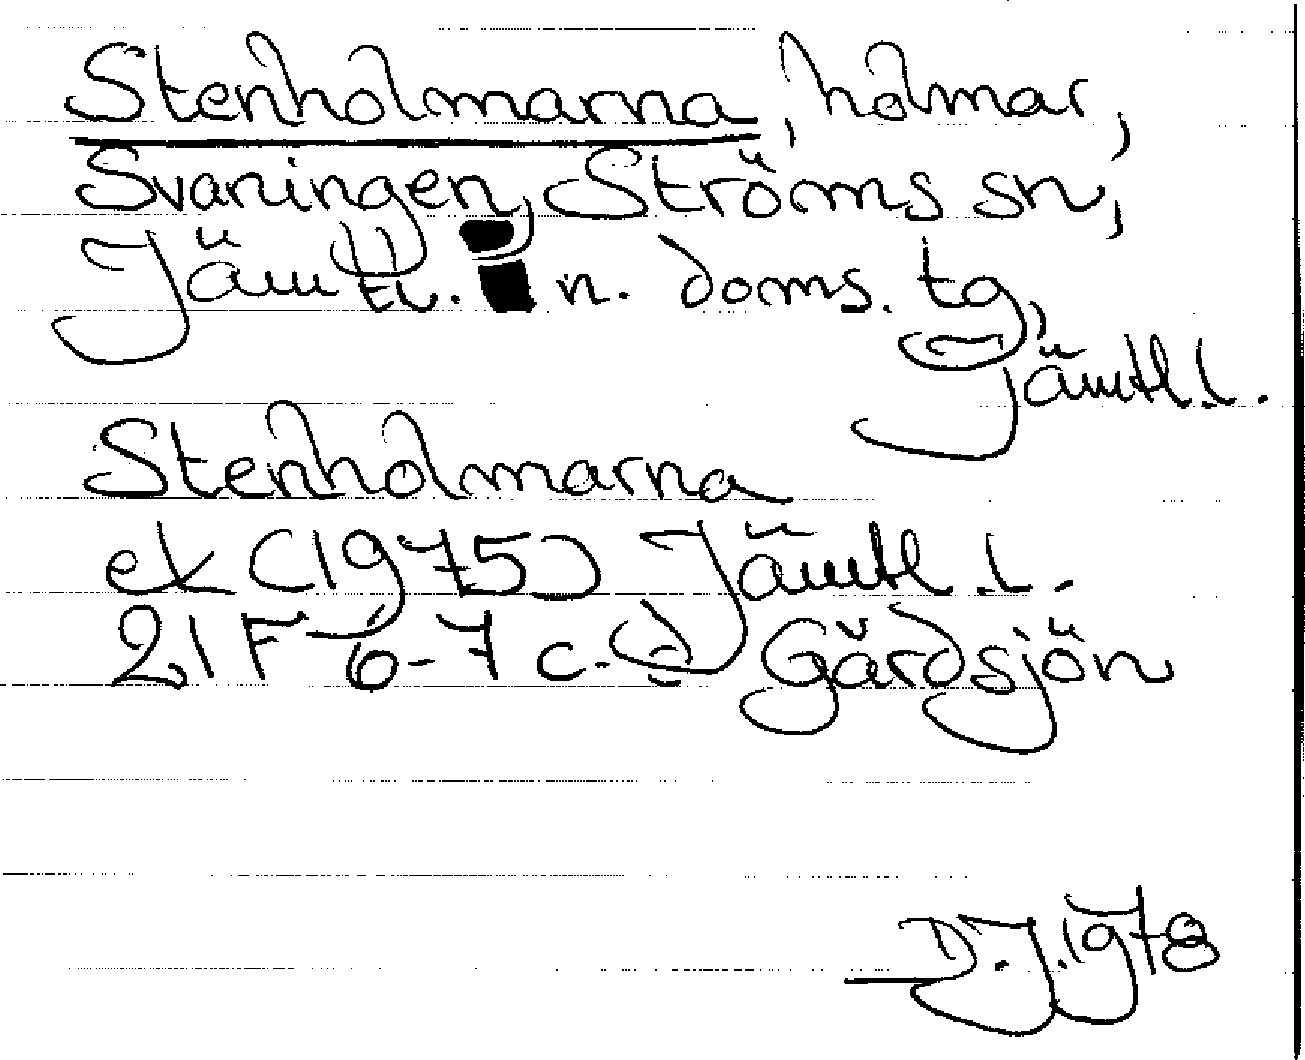 Stenholmarna, holmar,
Svaningen, Ströms sn,
Jämtl. n. doms. tg,
Jämtl. l.
Stenholmarna
ek (1975) Jämtl l.
21 F 6-7 c-d Gårdsjön
D.J. 1978